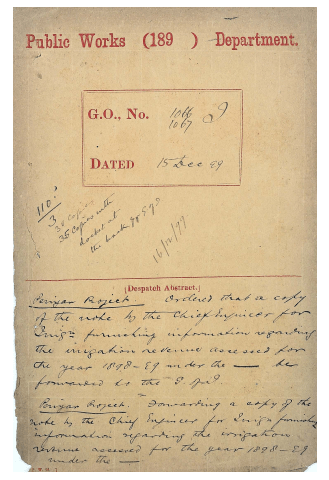 Public Works (189 ) Department.
G.O., No. 1066
1067
DATED 15 Dec 99
110
3
35 Copies with
docket at
the back of
16/12/99
(Despatch Abstract.)
Periyar Project. Ordered that a copy
of the note by the Chief Engineer for
Irrign furnishing information regarding
the irrigation revenue assessed for
the year 1898-99 under the — be
forwarded to the
Periyar Project. Forwarding a copy of the
note by the Chief Engineer for Irrign furnishing
information regarding the irrigation
revenue assessed for the year 1898-99
under the —